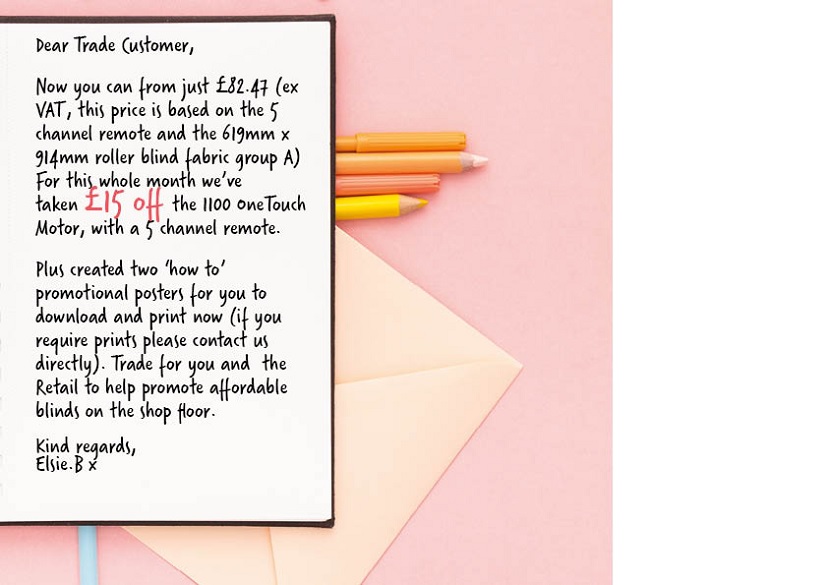 Dear Trade Customer,
Now you can from just £82.47 (ex
VAT, this price is based on the 5
channel remote and the 619mm x
914mm roller blind fabric group A)
For this whole month we've
taken £15 off the 1100 oneTouch
Motor, with a 5 channel remote.
Plus created two 'how to'
promotional posters for you to
download and print now (if you
require prints please contact us
directly). Trade for you and the
Retail to help promote affordable
blinds on the shop floor.
Kind regards,
Elsie.B x